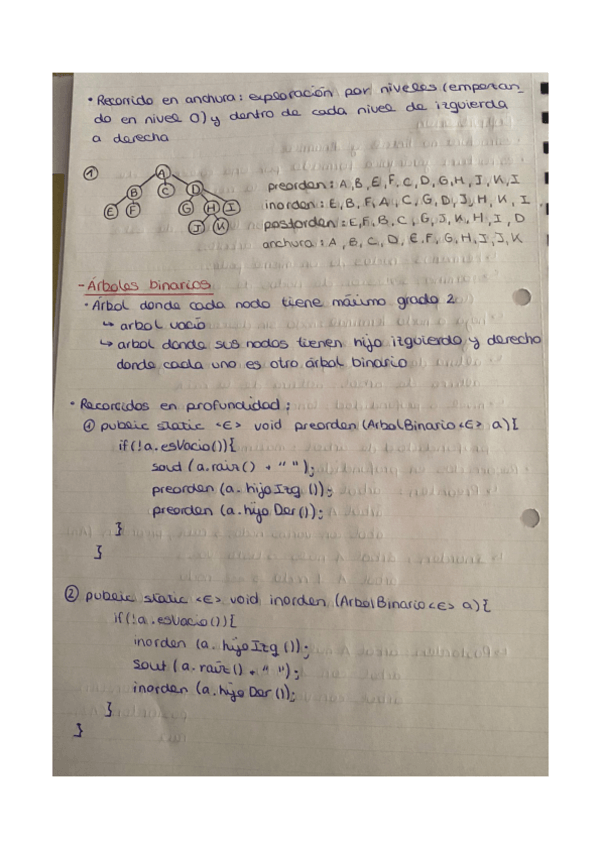 • Recorrido en anchura: exploración por niveles (empezan_
do en nivel 0) y dentro de cada nivel de izquierda
a derecha
①
A
B C D
E F G H I
J K
preorden: A, B, E, F, C, D, G, H, J, K, I
inorden: E, B, F, A, C, G, D, J, H, K, I
postorden: E, F, B, C, G, J, K, H, I, D
anchura: A, B, C, D, E, F, G, H, I, J, K
- Árboles binarios
• Árbol donde cada nodo tiene máximo grado 2
↳ arbol vacío
↳ arbol donde sus nodos tienen hijo izquierdo y derecho
donde cada uno es otro árbol binario
• Recorridos en profundidad:
① public static <E> void preorden (ArbolBinario<E> a){
if(!a.esVacio()){
sout (a.raiz() + " ");
preorden (a.hijoIzq());
preorden (a.hijoDer());
}
}
② public static <E> void inorden (ArbolBinario<E> a){
if(!a.esVacio()){
inorden (a.hijoIzq());
sout (a.raiz() + " ");
inorden (a.hijoDer());
}
}